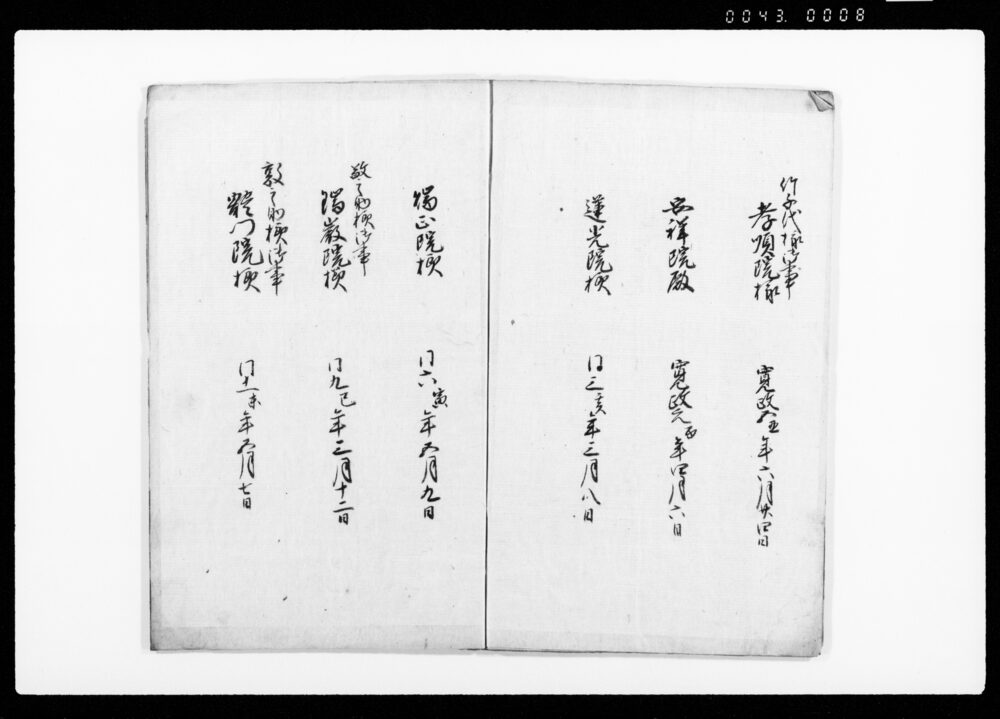 0043. 0008
竹千代様御事
孝順院様　寛政五丑年六月廿四日
安祥院殿　寛政元酉年四月六日
蓮光院様　同三亥年三月八日
端正院様　同六寅年五月九日
敬之助様御事
瑞巌院様　同九巳年三月十二日
敦之助様御事
體門院様　同十一未年五月七日